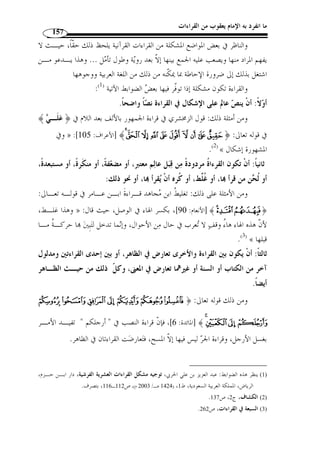 ما انفرد به الإمام يعقوب من القراءات
157
والناظر في بعض المواضع المشكلة من القراءات القرآنية يلحظ ذلك حقًّا، حيث لا
يفهم المراد منها ويصعب عليه الجمع بينها إلاَّ بعد رويَّة وطول تأمُّل ... وهذا يدعو من
اشتغل بذلك إلى ضرورة الإحاطة بما يمكِّنه من ذلك من اللغة العربية ووجوهها
والقراءة تكون مشكلة إذا توفَّر فيها بعضُ الضوابط الآتية (1):
أوّلاً: أن ينصّ عالمٌ على الإشكال في القراءة نصًّا واضحاً.
ومن أمثلة ذلك: قول الزمخشري في قراءة الجمهور بالألف بعد اللام في ﴿ عَلَىٰٓ ﴾
في قوله تعالى: ﴿ حَقِيقٌ عَلَىٰٓ أَن لَّآ أَقُولَ عَلَى ٱللَّهِ إِلَّا ٱلْحَقَّ ﴾ [الأعراف: 105]: « وفي
المشهورة إشكال » (2).
ثانياً: أن تكون القراءةُ مردودةً من قِبل عالمٍ معتبر، أو مضعّفةً، أو منكَرةً، أو مستبعدةً،
أو لُحِّن مَن قرأ بها، أو غُلِّط، أو كُره أن يُقرأ بها، أو نحو ذلك:
ومن الأمثلة على ذلك: تغليطُ ابن مُجاهد قراءةَ ابن عامر في قوله تعالى:
﴿ فَبِهُدَىٰهُمُ ٱقْتَدِهْ ﴾ [الأنعام: 90]، بكسر الهاء في الوصل، حيث قال: « وهذا غلط،
لأنَّ هذه الهاء هاءُ وقفٍ لا تُعرب في حالٍ من الأحوال، وإنَّما تدخل لتُبيّنَ بها حركةُ ما
قبلها » (3).
ثالثاً: أن يكون بين القراءة والأخرى تعارض في الظاهر، أو بين إحدى القراءتين ومدلولٍ
آخر من الكتاب أو السنة أو غيرهما تعارض في المعنى، وكلّ ذلك من حيث الظاهر
أيضاً.
ومن ذلك قوله تعالى: ﴿ فَٱغْسِلُوا۟ وُجُوهَكُمْ وَأَيْدِيَكُمْ إِلَى ٱلْمَرَافِقِ وَٱمْسَحُوا۟ بِرُءُوسِكُمْ
وَأَرْجُلَكُمْ إِلَى ٱلْكَعْبَيْنِ ﴾ [المائدة: 6]، فإنّ قراءة النصب في " أرجلكم " تفيد الأمر
بغسل الأرجل، وقراءة الجرّ ليس فيها إلاَّ المسح، فتعارضت القراءتان في الظاهر.
(1) ينظر هذه الضوابط: عبد العزيز بن علي الحربي، توجيه مشكل القراءات العشرية الفرشية، دار ابن حزم،
الرياض، المملكة العربية السعودية، ط1، 1424هـ، 2003م، ص112ـ116، بتصرف.
(2) الكشاف، ج2، ص137.
(3) السبعة في القراءات، ص262.